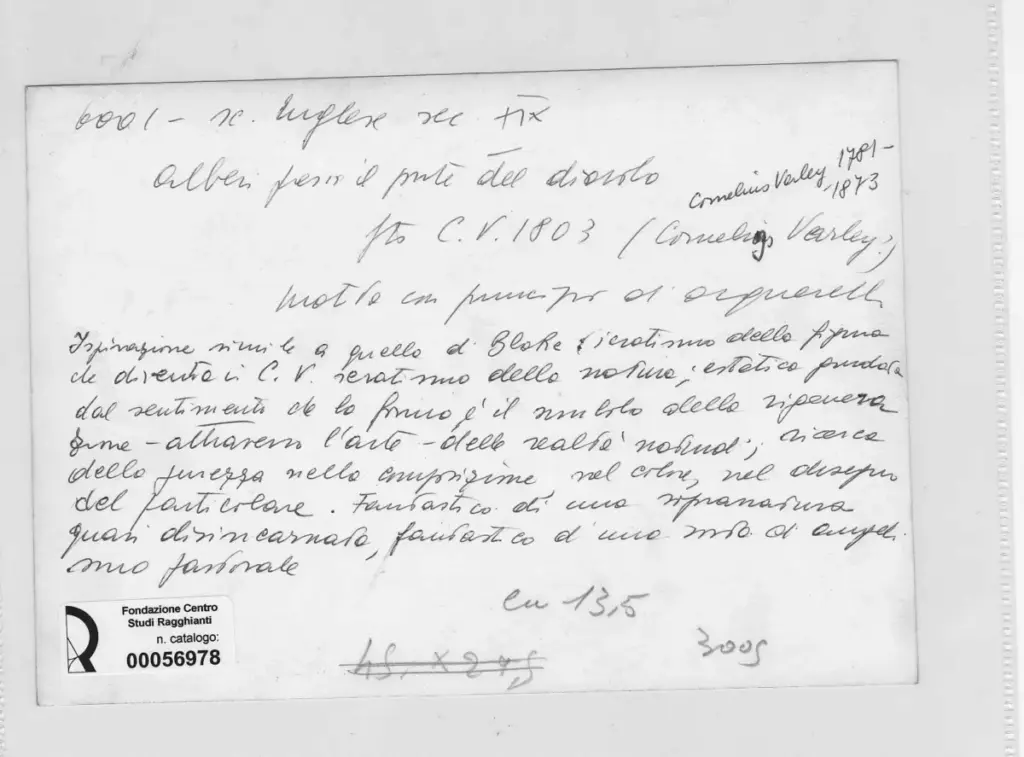 6001 – sc. Inglese sec XIX
Alberi presso il ponte del diavolo
fto C.V. 1803 (Cornelius Varley?)
Cornelius Varley 1781–
-1873
matita con principio di acquarelli
Ispirazione simile a quella di Blake; ieratismo della figura
che diventa in C. V. ieratismo della natura; estatica guidata
dal sentimento che la forma è il simbolo della rigenera
zione – attraverso l'arte – della realtà naturale; ricerca
della purezza nella composizione, nel colore, nel disegno
del particolare. Fantastico di una sopranatura
quasi disincarnata, fantastico di una sorta di angeli
smo pastorale
cm 13,5
45, x 27,5
3005
Fondazione Centro
Studi Ragghianti
n. catalogo:
00056978